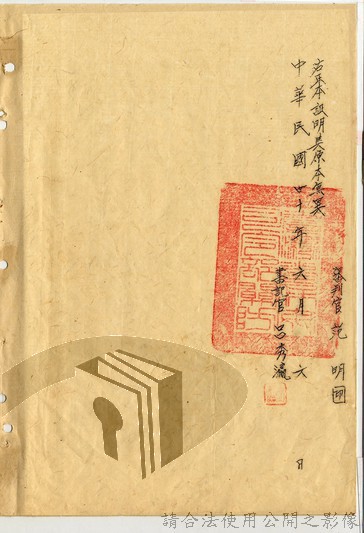 審判官 范明
右正本證明與原本無異
中華民國四十年六月六日
書記官 呂秀瀛
請合法使用公開之影像